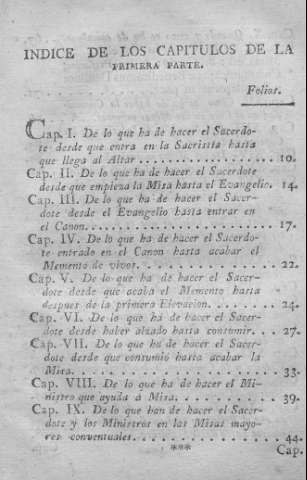 INDICE DE LOS CAPITULOS DE LA
PRIMERA PARTE.
Folios.
Cap. I. De lo que ha de hacer el Sacerdo-
te desde que entra en la Sacristia hasta
que llega al Altar . . . . . . . . . . . . . . . 10.
Cap. II. De lo que ha de hacer el Sacerdote
desde que empieza la Misa hasta el Evangelio. 14.
Cap. III. De lo que ha de hacer el Sacer-
dote desde el Evangelio hasta entrar en
el Canon. . . . . . . . . . . . . . . . . . . . 17.
Cap. IV. De lo que ha de hacer el Sacerdo-
te entrado en el Canon hasta acabar el
Memento de vivos. . . . . . . . . . . . . . . 22.
Cap. V. De lo que ha de hacer el Sacer-
dote desde que acaba el Memento hasta
despues de la primera Elevacion. . . . . . . 24.
Cap. VI. De lo que ha de hacer el Sacer-
dote desde haber alzado hasta consumir. . . 27.
Cap. VII. De lo que ha de hacer el Sacer-
dote desde que consumió hasta acabar la
Misa. . . . . . . . . . . . . . . . . . . . . . 33.
Cap. VIII. De lo que ha de hacer el Mi-
nistro que ayuda á Misa. . . . . . . . . . . 39.
Cap. IX. De lo que han de hacer el Sacer-
dote y los Ministros en las Misas mayo-
res conventuales. . . . . . . . . . . . . . . 44.
*** Cap.